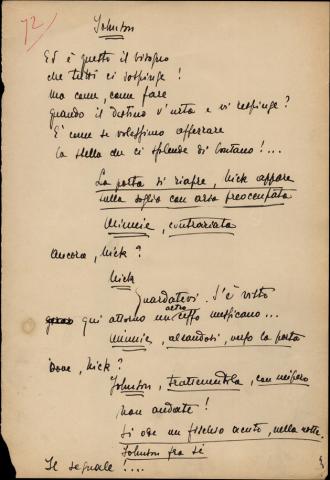 72
Johnson
Ed è questo il bisogno
che tutti ci sospinge!
ma come, come fare
quando il destino v'urta e vi respinge?
È come se volessimo afferrare
la stella che ci splende di lontano!...
La porta si riapre, Nick appare
sulla soglia con aria preoccupata
Minnie, contrariata
Ancora, Nick?
Nick
Guardatevi. S'è visto
qui attorno un altro ceffo messicano...
Minnie, alzandosi, verso la porta
Dove, Nick?
Johnson, trattenendola, con mistero
Non andate!
Si ode un fischio acuto, nella notte.
Johnson fra sé
Il segnale!....